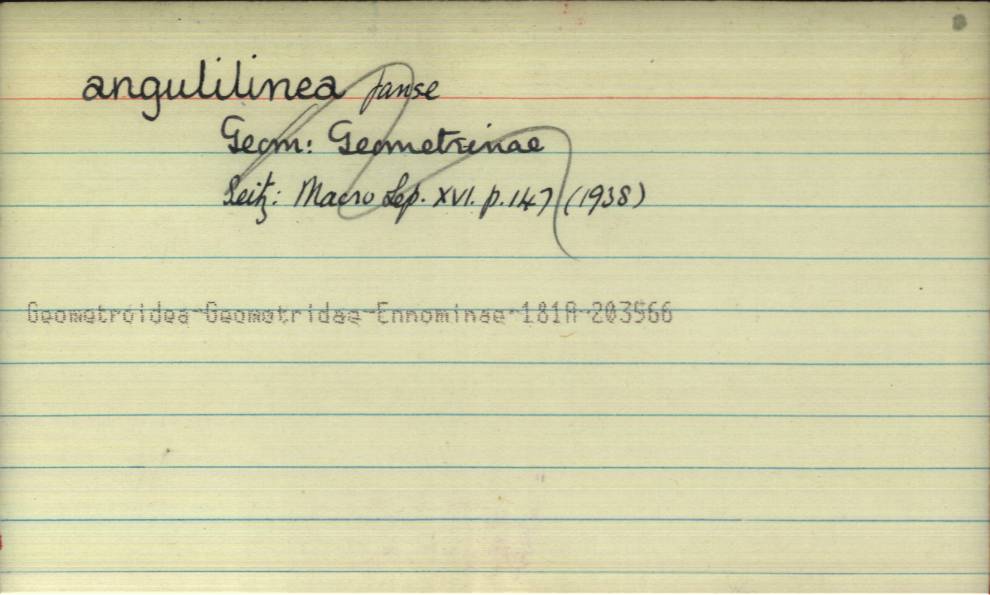 angulilinea Janse
Geom: Geometrinae
Seitz: Macro Lep. XVI. p.147 (1938)
Geometroidea-Geometridae-Ennominae-181A-203566